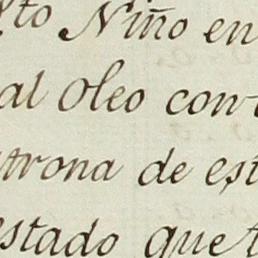 to Niño en
al Oleo con
trona de est
estado que